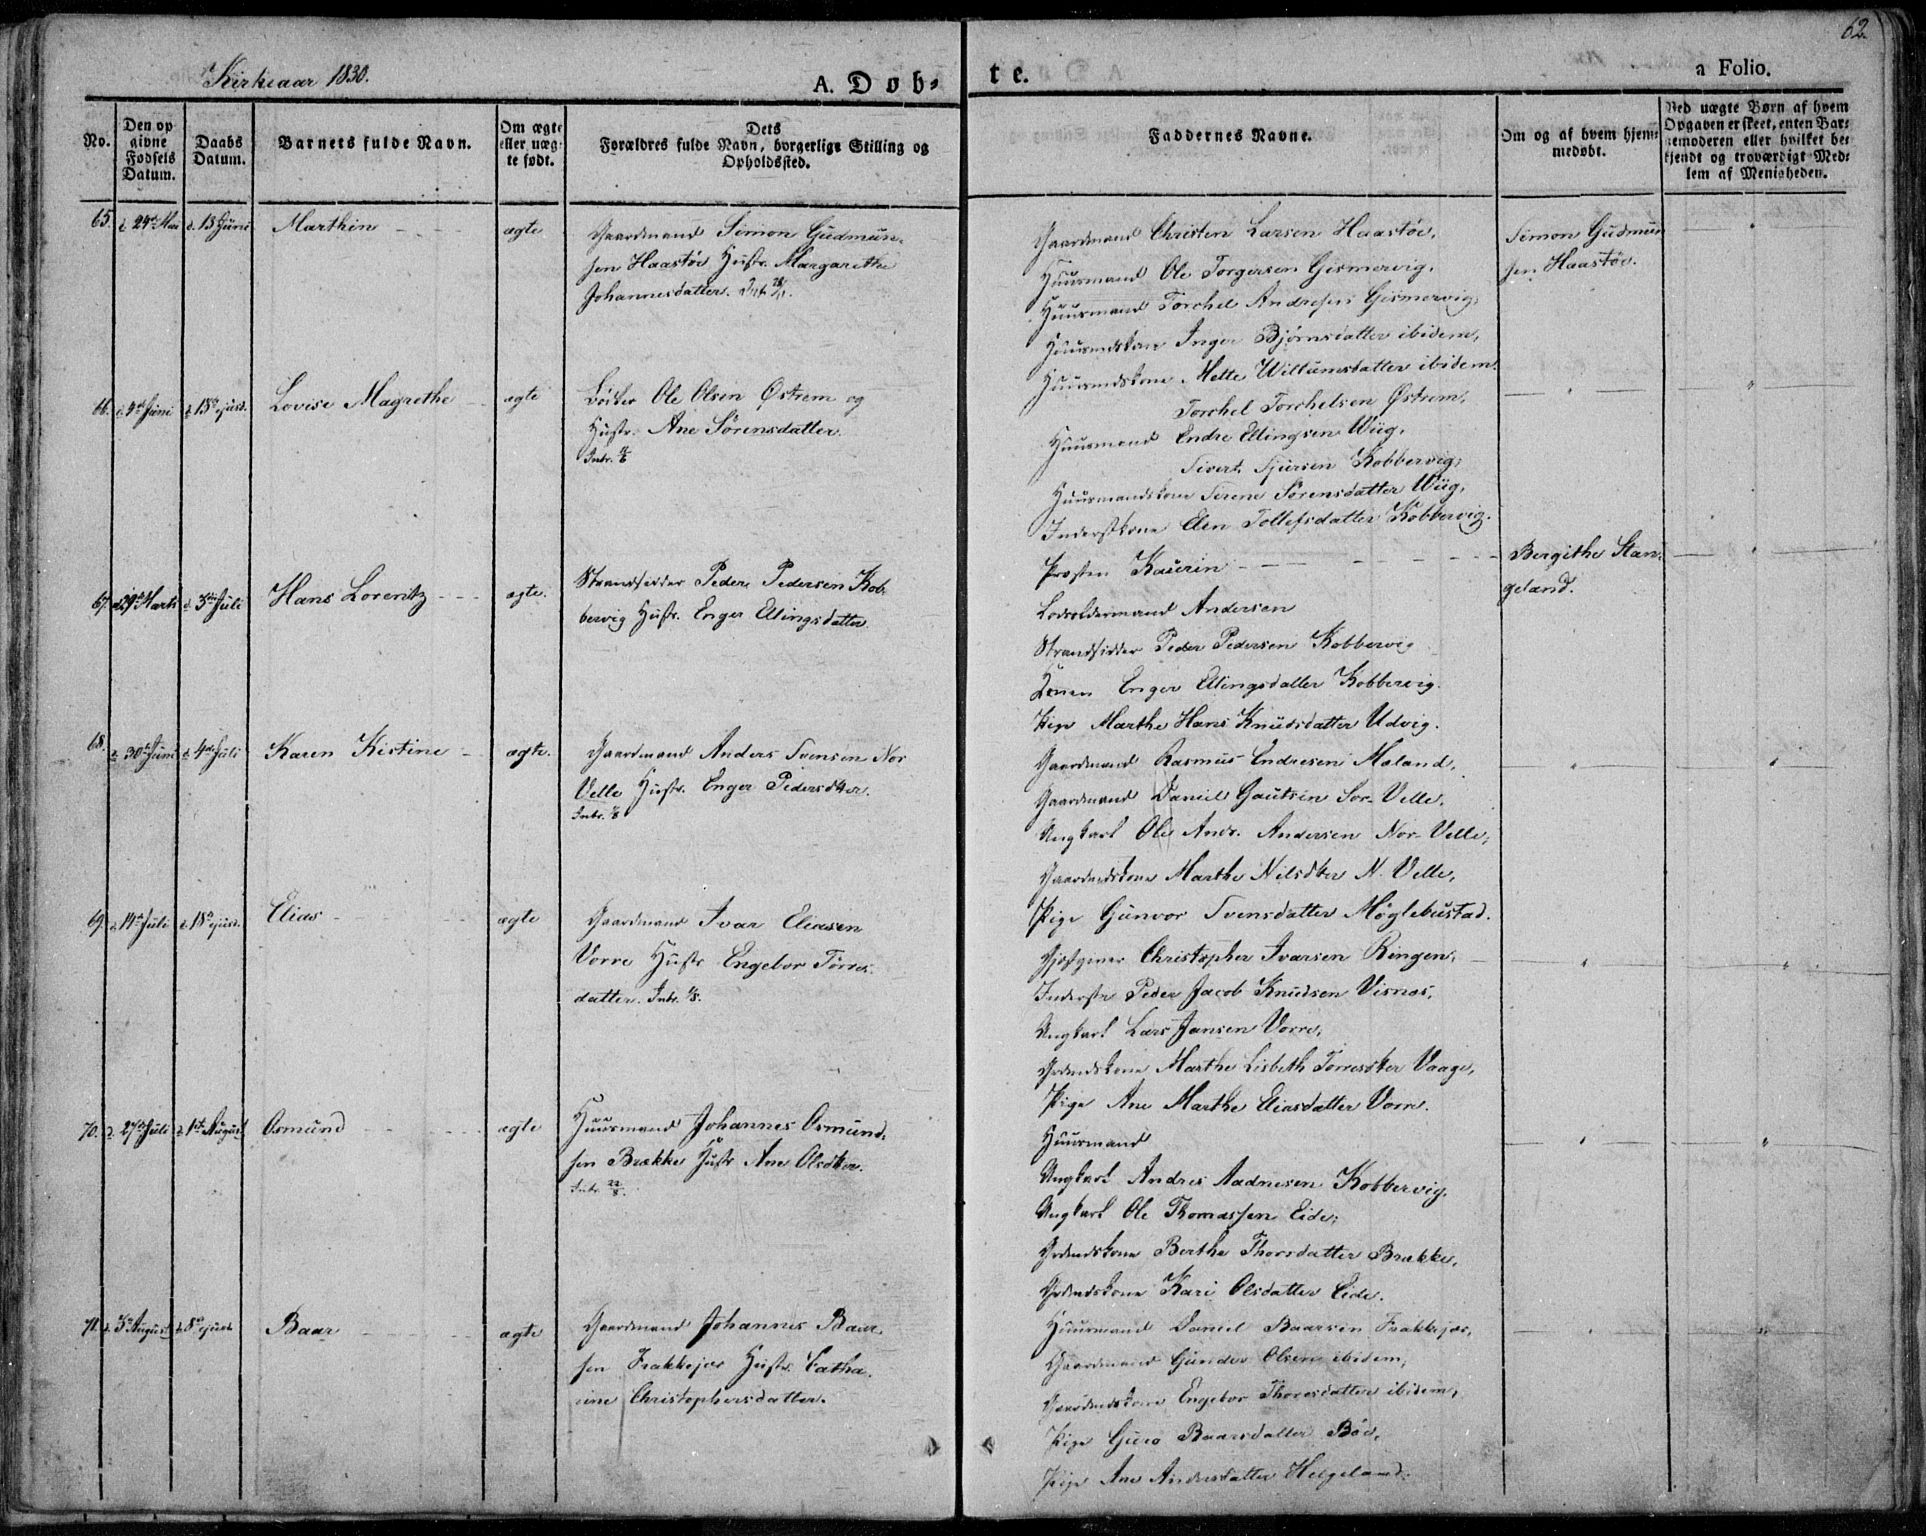 62.
Kirkeaar 1830.
A. Døb-
te.
a Folio.
No.
Den op
givne
Fødsels
Datum.
Daabs
Datum.
Barnets fulde Navn.
Om ægte
eller uæg-
te født.
Dets
Forældres fulde Navn, borgerlige Stilling og
Opholdssted.
Faddernes Navne.
Om og af hvem hjem-
medøbt.
Ved uægte Børn af hvem
Opgaven er skeet, enten Bar-
nemoderen eller hvilket be-
kjendt og troværdigt Med-
lem af Menigheden.
65. d. 24de Mai d. 13 Juni Marthin ægte
Gaardmand Simon Gudmun-
sen Haastøe Hustr. Margarethe
Johannesdatter.
Gaardmand Christen Larsen Haastøe,
Huusmand Ole Torgersen Gismervig,
Huusmand Torchel Andresen Gismervig,
Huusmdskone Inger Bjørnsdatter ibidem,
Huusmdskone Mette Willumsdatter ibidem.
Simon Gudmun
sen Haastøe.
66. d. 4de Juni d. 13de ejusd. Lovise Magrethe ægte
Ole Olsen Østrem og
Hustr. Ane Sørensdatter.
Intr.
Torchel Torchelsen Østrem,
Huusmand Endre Ellingsen Wiig,
Sivert Sjursen Kobbervig,
Huusmandskone Serene Sørensdatter Wiig,
Inderstkone Elen Tollefsdatter Kobbervig.
67. d. 29de Marts d. 3die Juli Hans Lorentz ægte.
Strandsidder Peder Pedersen Kob-
bervig Hustr. Enger Ellingsdatter.
Provsten Kaurin
Lodsoldermand Andersen
Strandsidder Peder Pedersen Kobbervig
Konen Enger Ellingsdatter Kobbervig.
Pige Marthe Hans Knudsdatter Udvig.
Bergithe Stan-
geland.
68. d. 30te Juni d. 4de Juli Karen Kistine ægte.
Gaardmand Anders Svensen Nor
Velle Hustr. Enger Pedersdtter.
Intr.
Gaardmand Rasmus Endresen Moland,
Gaardmand Daniel Gautsen Sør-Velle,
Ungkarl Ole Andr. Andersen Nor-Velle,
Gaardmdskone Marthe Nilsdtter N. Velle,
Pige Gunvor Svensdatter Møglebustad.
69. d. 14de Juli d. 18de ejusd. Elias ægte
Gaardmand Ivar Eliasen
Vorre Hustr Engebor Torres-
datter. Intr. 1/8.
Christopher Ivarsen Ringen,
Inderste Peder Jacob Knudsen Visnæs,
Ungkarl Lars Jansen Vorre,
Grdmdskone Marthe Lisbeth Torresdtter Vaage,
Pige Ane Marthe Eliasdatter Vorre.
70. d. 27de Juli d. 1ste August Osmund ægte
Huusmand Johannes Osmund-
sen Brække Hustr Ane Olsdtter.
Intr. 22/8.
Huusmand
Ungkarl Andres Aadnesen Kobbervig,
Ungkarl Ole Thomassen Eide,
Grdmdskone Berthe Thorsdatter Brække,
Grdmdskone Kari Olsdatter Eide.
71. d. 3die August d. 8de ejusd. Baar ægte
Gaardmand Johannes Baar-
sen Frakkejær Hustr. Catha-
rine Christophersdatter.
Huusmand Daniel Baarsen Frakkejær,
Gaardmand Gunder Olsen ibidem,
Gaardmdskone Engebor Thoresdatter ibidem,
Pige Guro Baarsdatter Bøe,
Pige Ane Andersdatter Helgeland.